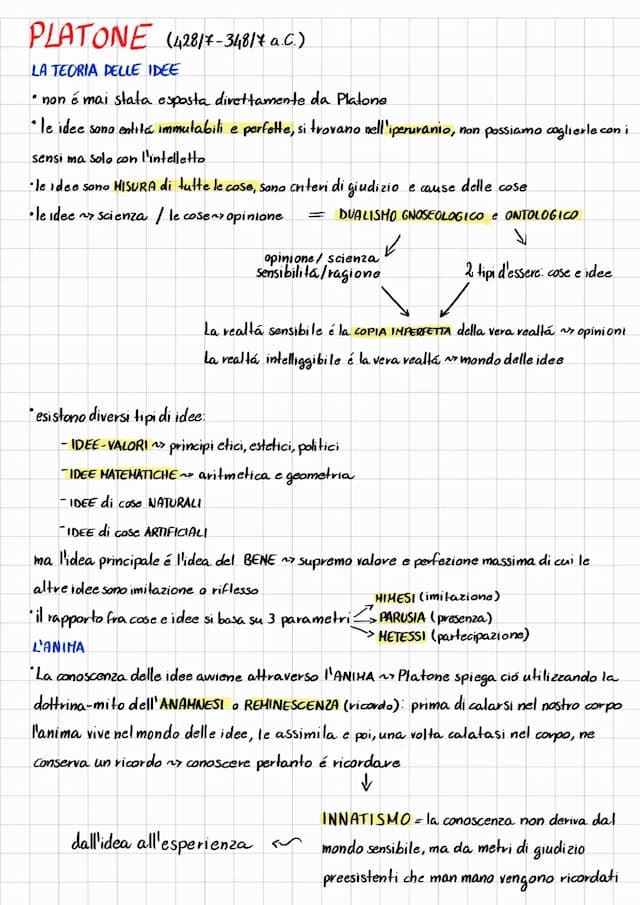 PLATONE (428/7-348/7 a.C.)
LA TEORIA DELLE IDEE
• non é mai stata esposta direttamente da Platone
• le idee sono entitá immutabili e perfette, si trovano nell'iperuranio, non possiamo coglierle con i
sensi ma solo con l'intelletto
• le idee sono MISURA di tutte le cose, sono criteri di giudizio e cause delle cose
• le idee ~> scienza / le cose ~> opinione = DUALISMO GNOSEOLOGICO e ONTOLOGICO
opinione/ scienza
sensibilitá/ragione
2 tipi d'essere: cose e idee
La realtá sensibile é la COPIA IMPERFETTA della vera realtá ~> opinioni
La realtá intelliggibile é la vera realtá ~> mondo delle idee
• esistono diversi tipi di idee:
- IDEE-VALORI ~> principi etici, estetici, politici
- IDEE MATEMATICHE ~> aritmetica e geometria
- IDEE di cose NATURALI
- IDEE di cose ARTIFICIALI
ma l'idea principale é l'idea del BENE ~> supremo valore e perfezione massima di cui le
altre idee sono imitazione o riflesso
• il rapporto fra cose e idee si basa su 3 parametri
MIMESI (imitazione)
PARUSIA (presenza)
METESSI (partecipazione)
L'ANIMA
• La conoscenza delle idee avviene attraverso l'ANIMA ~> Platone spiega ció utilizzando la
dottrina-mito dell'ANAMNESI o REMINESCENZA (ricordo): prima di calarsi nel nostro corpo
l'anima vive nel mondo delle idee, le assimila e poi, una volta calatasi nel corpo, ne
conserva un ricordo ~> conoscere pertanto é ricordare
INNATISMO = la conoscenza non deriva dal
mondo sensibile, ma da metri di giudizio
preesistenti che man mano vengono ricordati
dall'idea all'esperienza